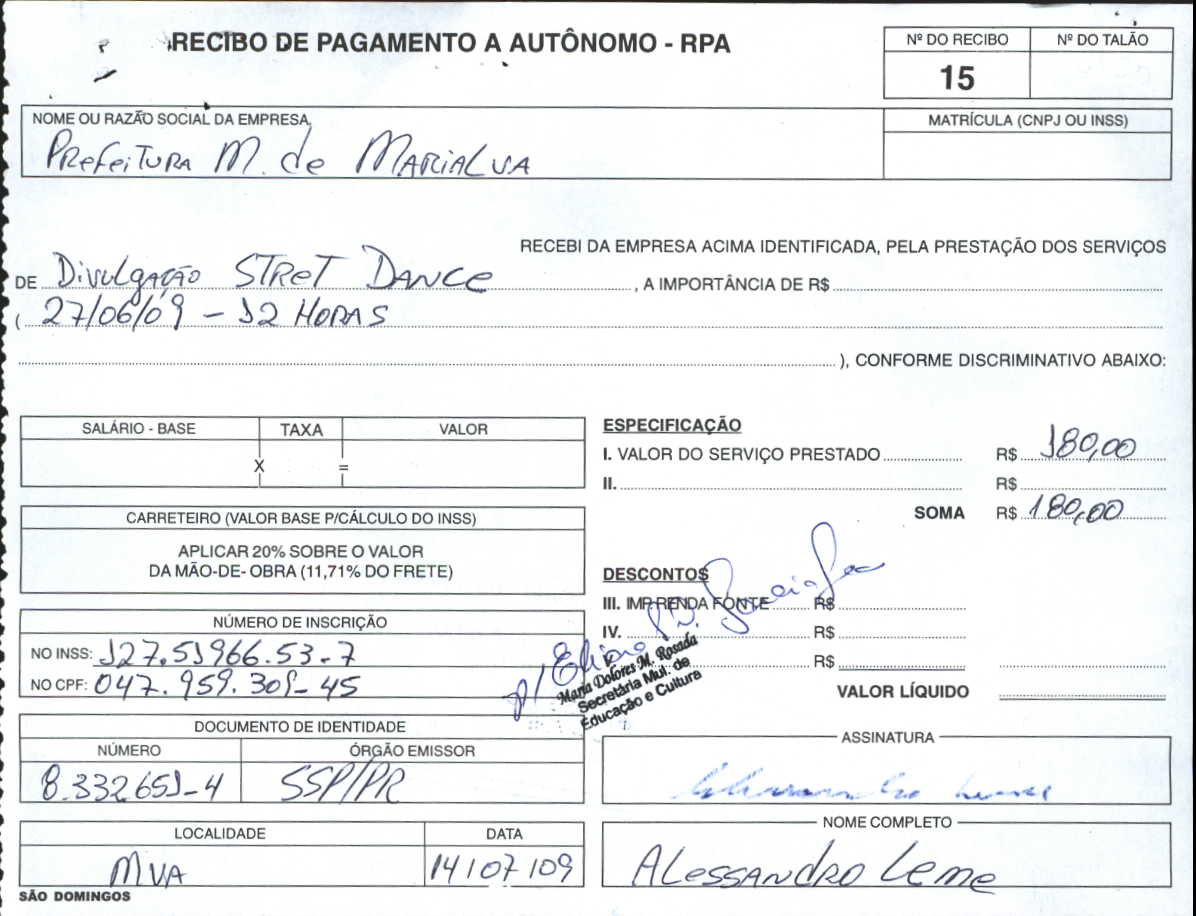 RECIBO DE PAGAMENTO A AUTÔNOMO - RPA
Nº DO RECIBO
Nº DO TALÃO
15
NOME OU RAZÃO SOCIAL DA EMPRESA
MATRÍCULA (CNPJ OU INSS)
Prefeitura M. de Marialva
RECEBI DA EMPRESA ACIMA IDENTIFICADA, PELA PRESTAÇÃO DOS SERVIÇOS
DE Divulgação Stret Dance , A IMPORTÂNCIA DE R$
( 27/06/09 - 12 Horas
), CONFORME DISCRIMINATIVO ABAIXO:
SALÁRIO - BASE TAXA VALOR
X =
CARRETEIRO (VALOR BASE P/CÁLCULO DO INSS)
APLICAR 20% SOBRE O VALOR
DA MÃO-DE- OBRA (11,71% DO FRETE)
NÚMERO DE INSCRIÇÃO
NO INSS: 127.51966.53-7
NO CPF: 047.959.309-45
DOCUMENTO DE IDENTIDADE
NÚMERO ÓRGÃO EMISSOR
8.332651-4 SSP/PR
LOCALIDADE DATA
MVA 14/07/09
SÃO DOMINGOS
ESPECIFICAÇÃO
I. VALOR DO SERVIÇO PRESTADO R$ 180,00
II. R$
SOMA R$ 180,00
DESCONTOS
III. IMP. RENDA FONTE R$
IV. R$
V. R$
VALOR LÍQUIDO
Maria Dolores M. Rosada
Secretária Mul. de
Educação e Cultura
ASSINATURA
NOME COMPLETO
Alessandro Leme